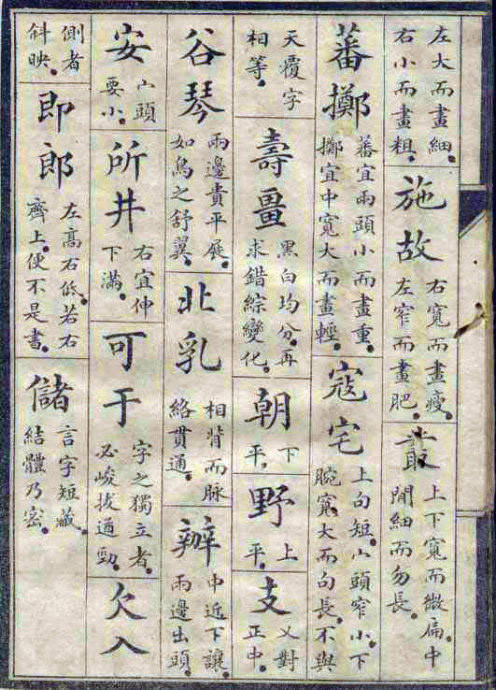 左大而畫細。
右小而畫粗。
施故
右寬而畫瘦。
左窄而畫肥。
叢
上下寬而微扁。中
間細而勿長。
蕃擲
蕃宜兩頭小而畫重。
擲宜中寬大而畫輕。
寇宅
上勾短。宀頭窄小。下
腕寬大而勾長。不與
天覆字
相等。
壽畺
黑白均分。再
求錯綜變化。
朝
下
平。
野
上
平。
支
乂對
正中。
谷琴
兩邊貴平展。
如鳥之舒翼。
北乳
相背而脉
絡貫通。
辦
中近下讓。
兩邊出頭。
安
宀頭
要小。
所井
右宜伸
下滿。
可于
字之獨立者。
必峻拔遒勁。
欠入
側者
斜映。
即郎
左高右低。若右
齊上。便不是書。
儲
言字短藏。
結體乃密。